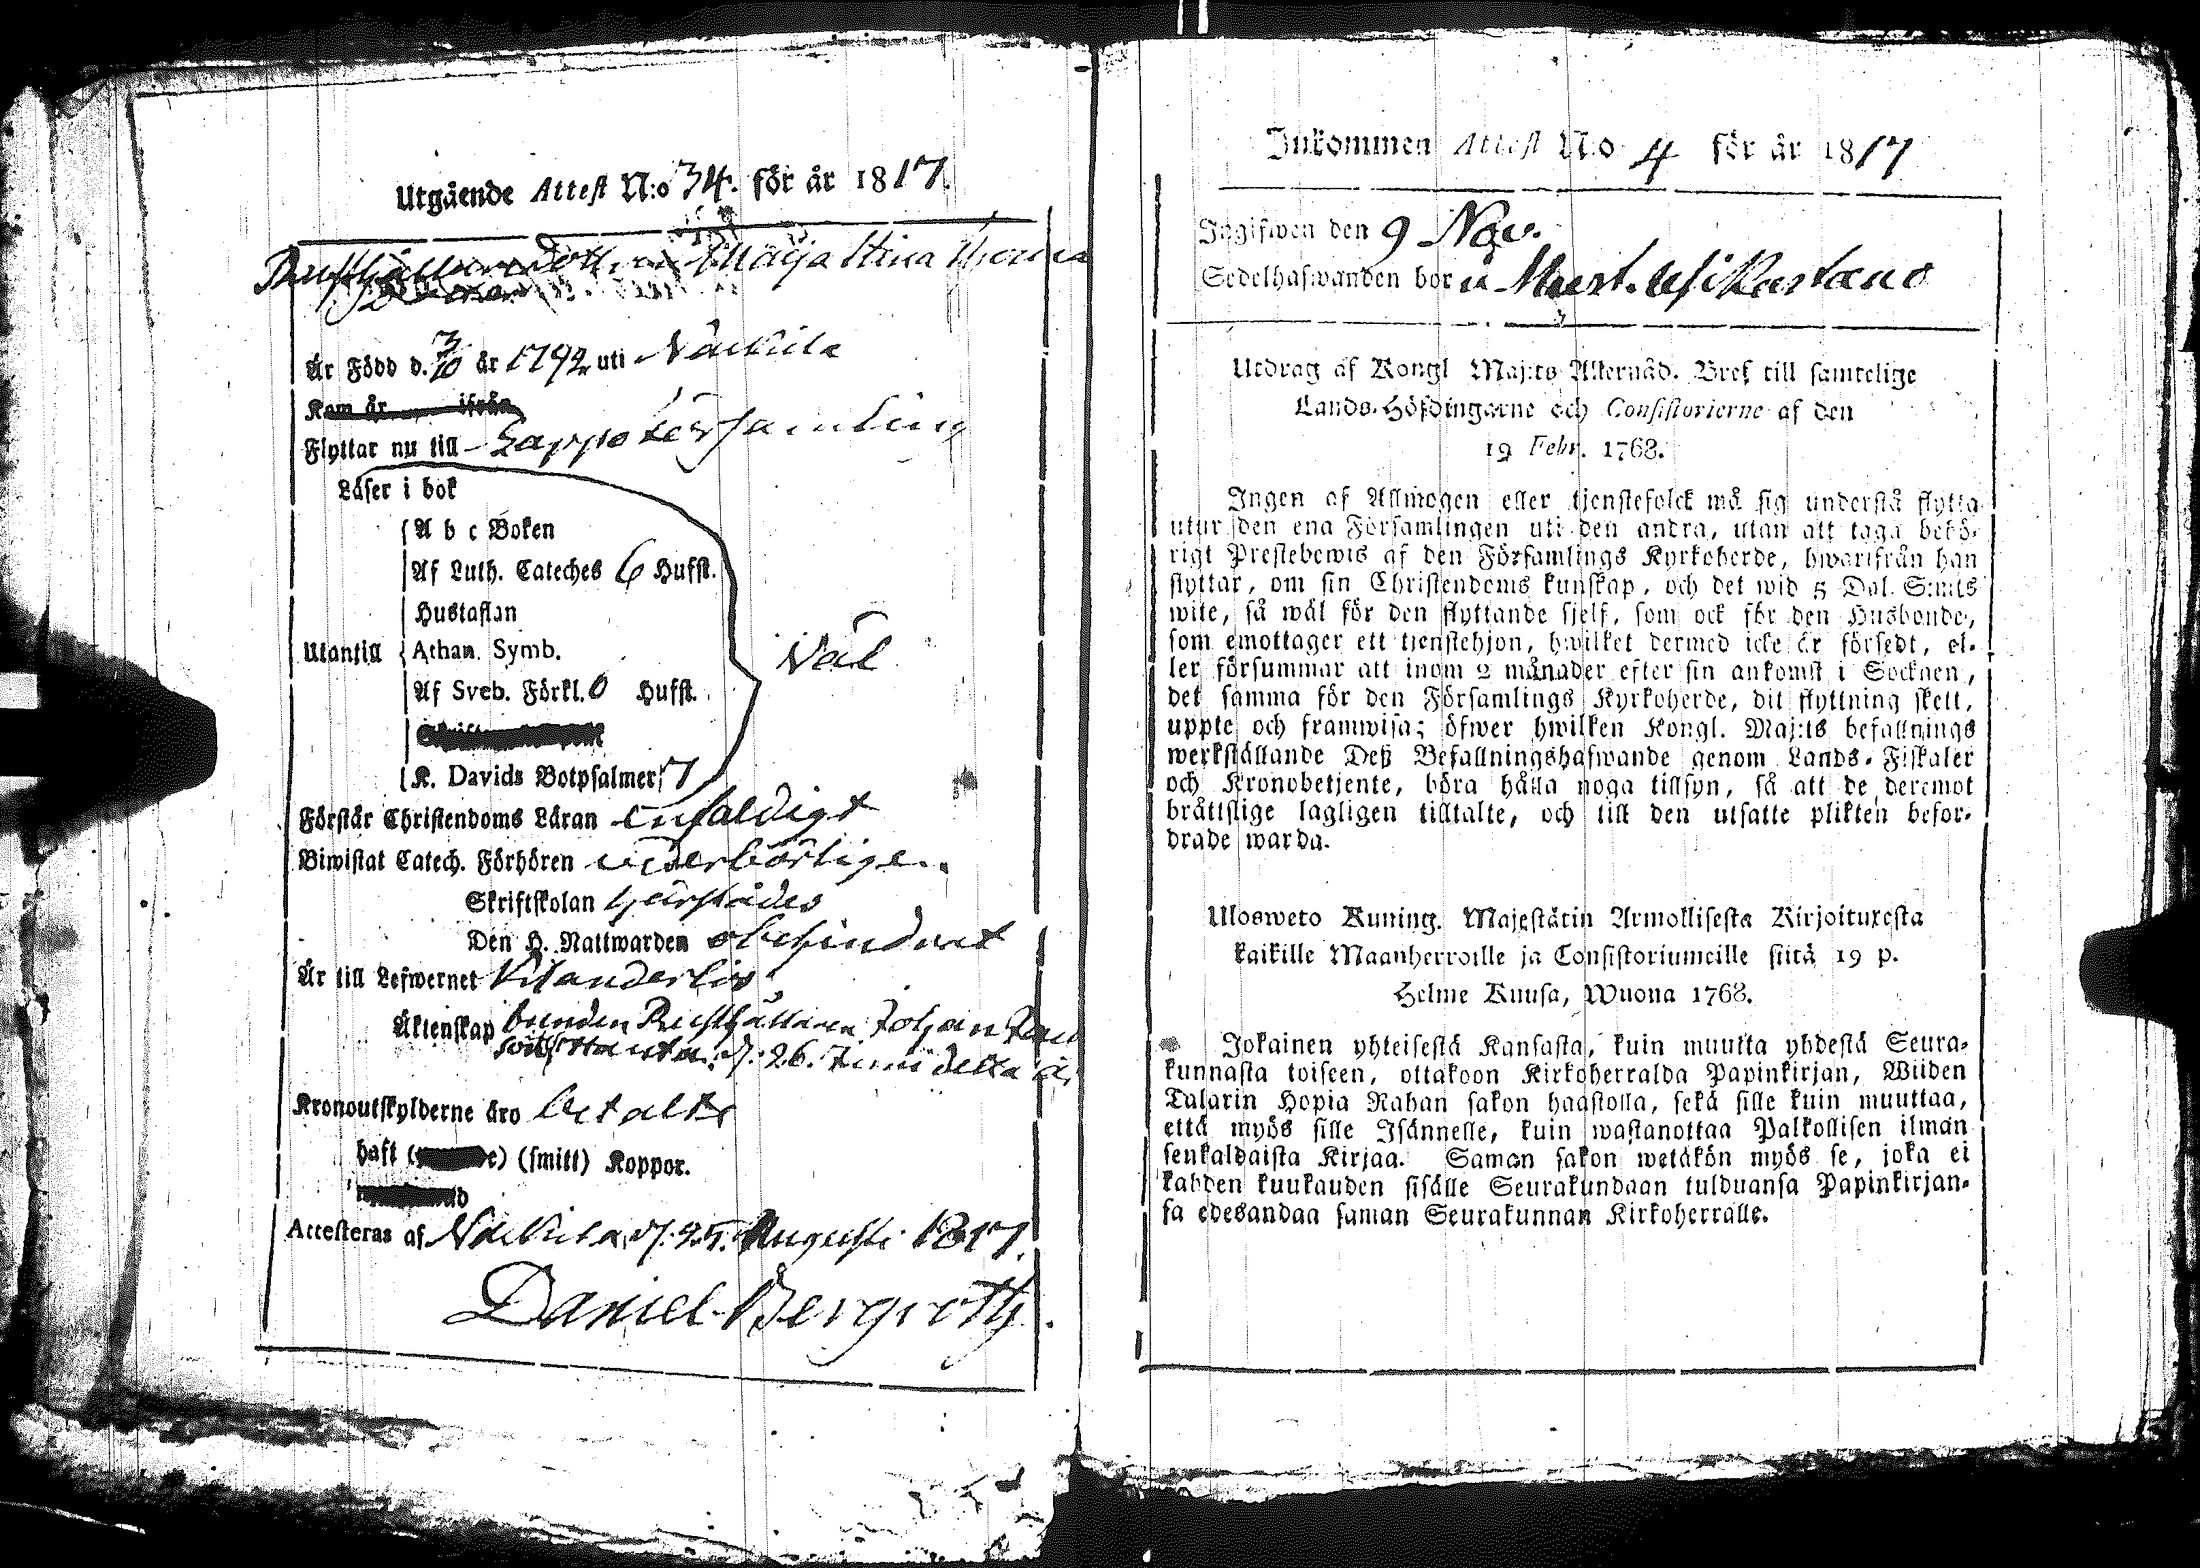 Utgående Attest N:o 34. för år 1817.
Maija Stina
Är Född d. 3/10 år 1792 uti Nackila
Kam år ifrån
Flyttar nu till Lappo Församling
Läser i bok
A b c Boken
Af Luth. Cateches 6 Hufst.
Hustaflan
Utantill Athan. Symb.
Af Sveb. Förkl. 0 Hufst.
K. Davids Botpsalmer 7
Väl
Förstår Christendoms Läran enfaldigt
Biwistat Catech. Förhören vederbörligen.
Skriftskolan härstädes
Den H. Nattwarden obehindrat
Är till Lefwernet klanderlös
Äktenskap bunden Rusthållaren Johan
d. 26. Junii detta år
Kronoutskylderne äro betalte
haft (smitt) Koppor.
Attesteras af Nackila, d. 25. Augusti 1817.
Daniel Bergroth
Inkommen Attest N:o 4 för år 1817
Ingifwen den 9 Nov.
Sedelhafwanden bor i
Utdrag af Kongl Maj:ts Allernåd. Bref till samtelige
Lands-Höfdingarne och Consistorierne af den
19 Febr. 1768.
Ingen af Allmogen eller tjenstefolck må sig understå flytta
utur den ena Församlingen uti den andra, utan att taga behö-
rigt Prestebewis af den Församlings Kyrkoherde, hwarifrån han
flyttar, om sin Christendoms kunskap, och det wid 5 Dal. S:mts
wite, så wäl för den flyttande sjelf, som ock för den Husbonde,
som emottager ett tjenstehjon, hwilket dermed icke är försedt, el-
ler försummar att inom 2 månader efter sin ankomst i Socknen,
det samma för den Församlings Kyrkoherde, dit flyttning skett,
uppte och framwisa; öfwer hwilken Kongl. Maj:ts befallnings
werkställande Deß Befallningshafwande genom Lands-Fiskaler
och Kronobetjente, böra hålla noga tillsyn, så att de deremot
bråtislige lagligen tilltalte, och till den utsatte plikten befor-
drade warda.
Ulosweto Kuning. Majestätin Armollisesta Kirjoituxesta
kaikille Maanherroille ja Consistoriumeille siitä 19 p.
Helme Kuusa, Wuona 1768.
Jokainen yhteisestä Kansasta, kuin muutta yhdestä Seura-
kunnasta toiseen, ottakoon Kirkoherralda Papinkirjan, Wiiden
Talarin Hopia Rahan sakon haastolla, sekä sille kuin muuttaa,
että myös sille Isännelle, kuin wastanottaa Palkollisen ilman
senkaldaista Kirjaa. Saman sakon wetäkön myös se, joka ei
kahden kuukauden sisälle Seurakundaan tulduansa Papinkirjan-
sa edesandaa saman Seurakunnan Kirkoherralle.